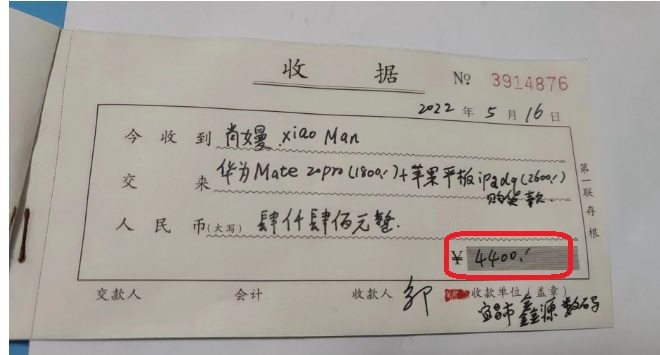 收 据 № 3914876
2022 年 5 月 16 日
今 收 到 肖嫚 xiao Man
交 来 华为Mate 20pro(1800.)+苹果平板ipad9(2600.)
购货款.
人 民 币(大写) 肆仟肆佰元整.
¥ 4400.
交款人 会计 收款人 邹 收款单位(盖章)
宜昌市鑫源数码
第一联存根